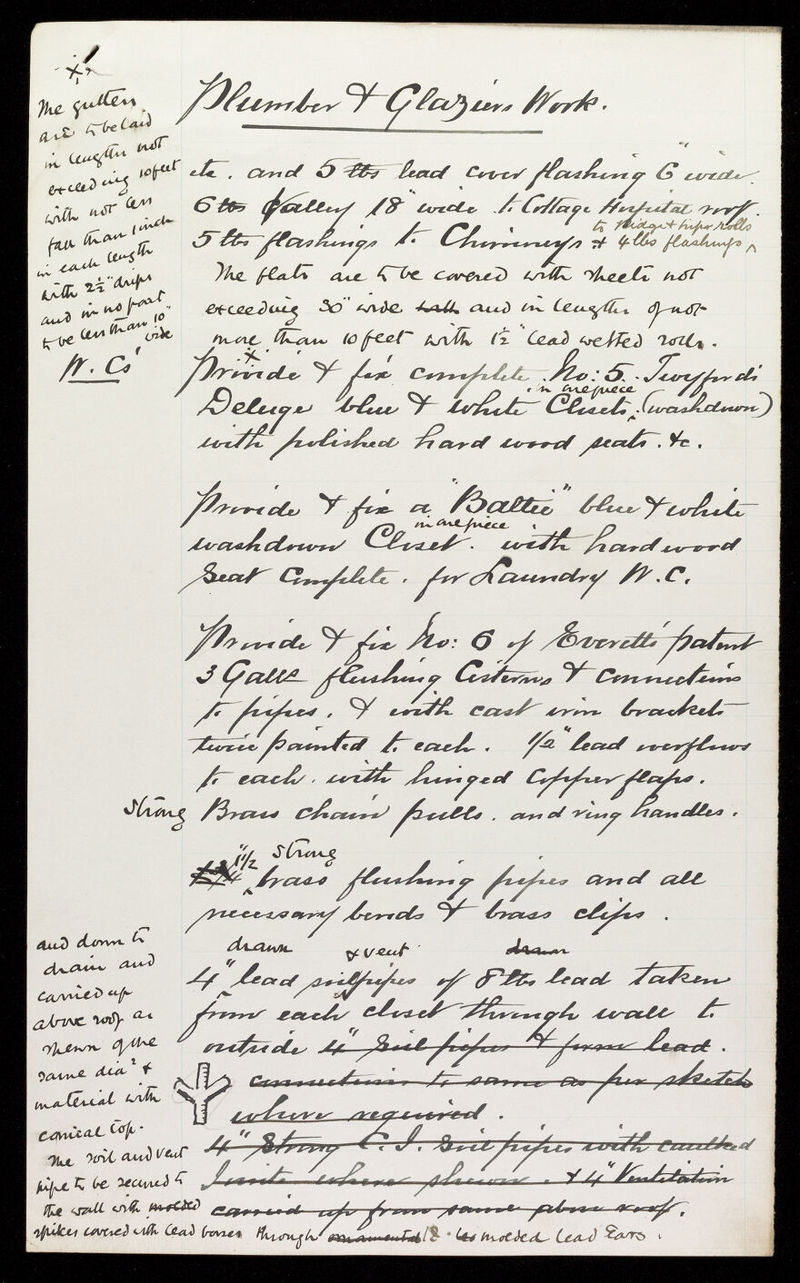 Plumber & Glaziers Work.
x
The gutters
are to be laid
in lengths not
exceeding 10 feet
with not less
fall than 1 inch
in each length
with 2½" drips
and in no part
to be less than 10"
wide
etc. and 5 lbs lead cover flashing 6" wide.
6 lbs Valley 18" wide to Cottage Hospital roof.
to Ridge & hip rolls
5 lbs flashings to Chimneys & 4 lbs flashings
The flats are to be covered with sheets not
exceeding 30" wide and in lengths of not
more than 10 feet with 1½" lead welted rolls.
W. Cs
x
Provide & fix complete No: 5. Twyfords
in one piece
Deluge blue & white Closets. (washdown)
with polished hard wood seats. &c.
Provide & fix a "Baltic" blue & white
in one piece
washdown Closet. with hard wood
Seat Complete. for Laundry W.C.
Provide & fix No: 6 of Everetts patent
3 Galls flushing Cisterns & connections
to pipes. & with cast iron brackets
twice painted to each. 1½" lead overflows
to each. with hinged Copper flaps.
Strong Brass chain pulls. and ring handles.
1½" Strong
brass flushing pipes and all
necessary bends & brass clips.
drawn & vent drawn
4" lead soilpipes of 8 lbs lead taken
from each closet through wall to
outside 4" Soil pipes & form lead.
connections to same as per sketch
where required.
4" Strong C. I. Soil pipes with caulked
Joints where shewn. & 4" Ventilation
carried up from same above roof.
and down to
drain and
carried up
above roof as
shewn of the
same diar &
material with
conical top.
The soil and vent
pipe to be secured to
the wall with molded
spikes covered with lead bosses through ornamental molded lead Ears.